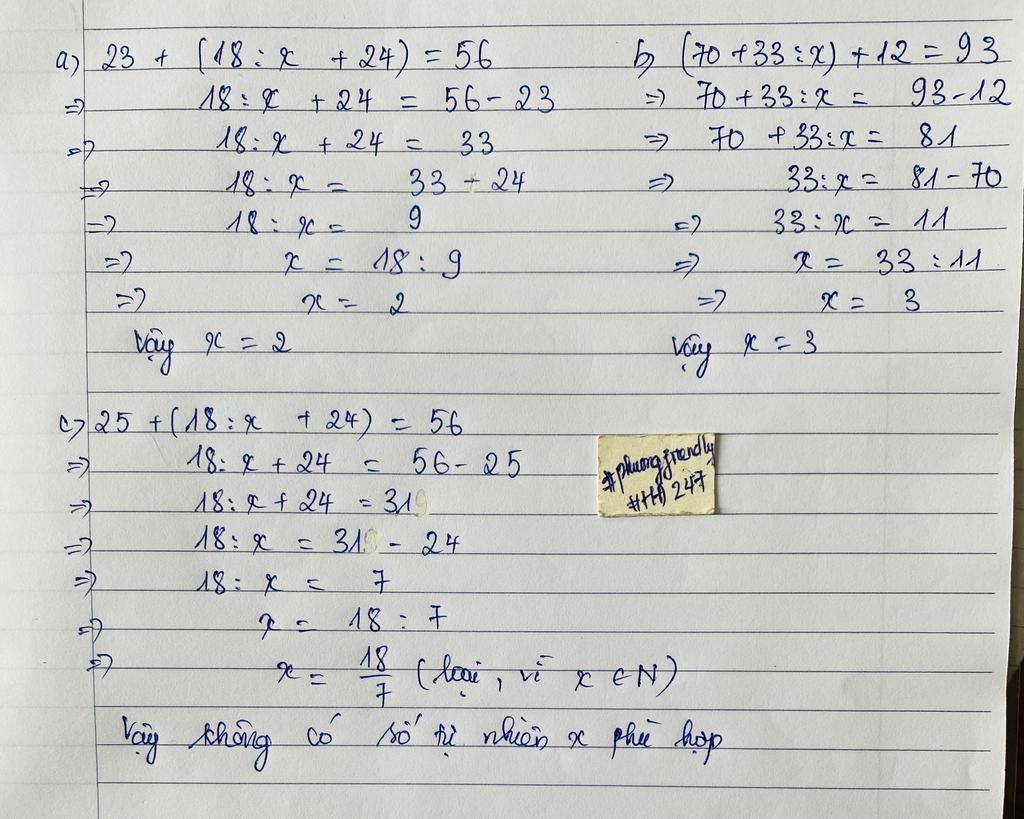 a) 23 + (18 : x + 24) = 56
=> 18 : x + 24 = 56 - 23
=> 18 : x + 24 = 33
=> 18 : x = 33 - 24
=> 18 : x = 9
=> x = 18 : 9
=> x = 2
Vậy x = 2
b) (70 + 33 : x) + 12 = 93
=> 70 + 33 : x = 93 - 12
=> 70 + 33 : x = 81
=> 33 : x = 81 - 70
=> 33 : x = 11
=> x = 33 : 11
=> x = 3
Vậy x = 3
c) 25 + (18 : x + 24) = 56
=> 18 : x + 24 = 56 - 25
=> 18 : x + 24 = 31
=> 18 : x = 31 - 24
=> 18 : x = 7
=> x = 18 : 7
=> x = 18/7 (loại, vì x ∈ N)
Vậy không có số tự nhiên x phù hợp
#phuongfriendly
247